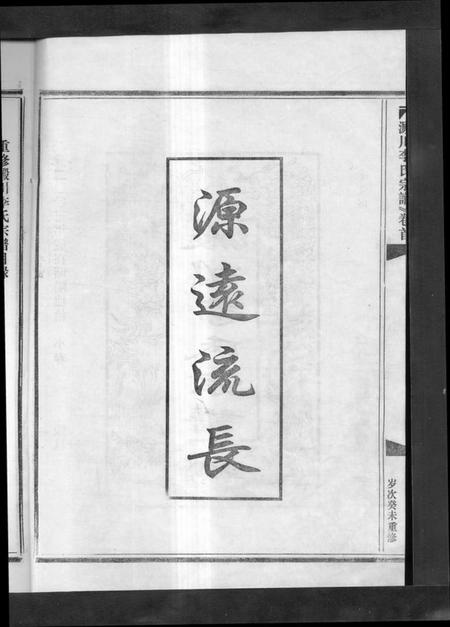 澱川李氏宗譜 卷首
岁次癸未重修
源遠流長
重修澱川李氏宗譜目錄